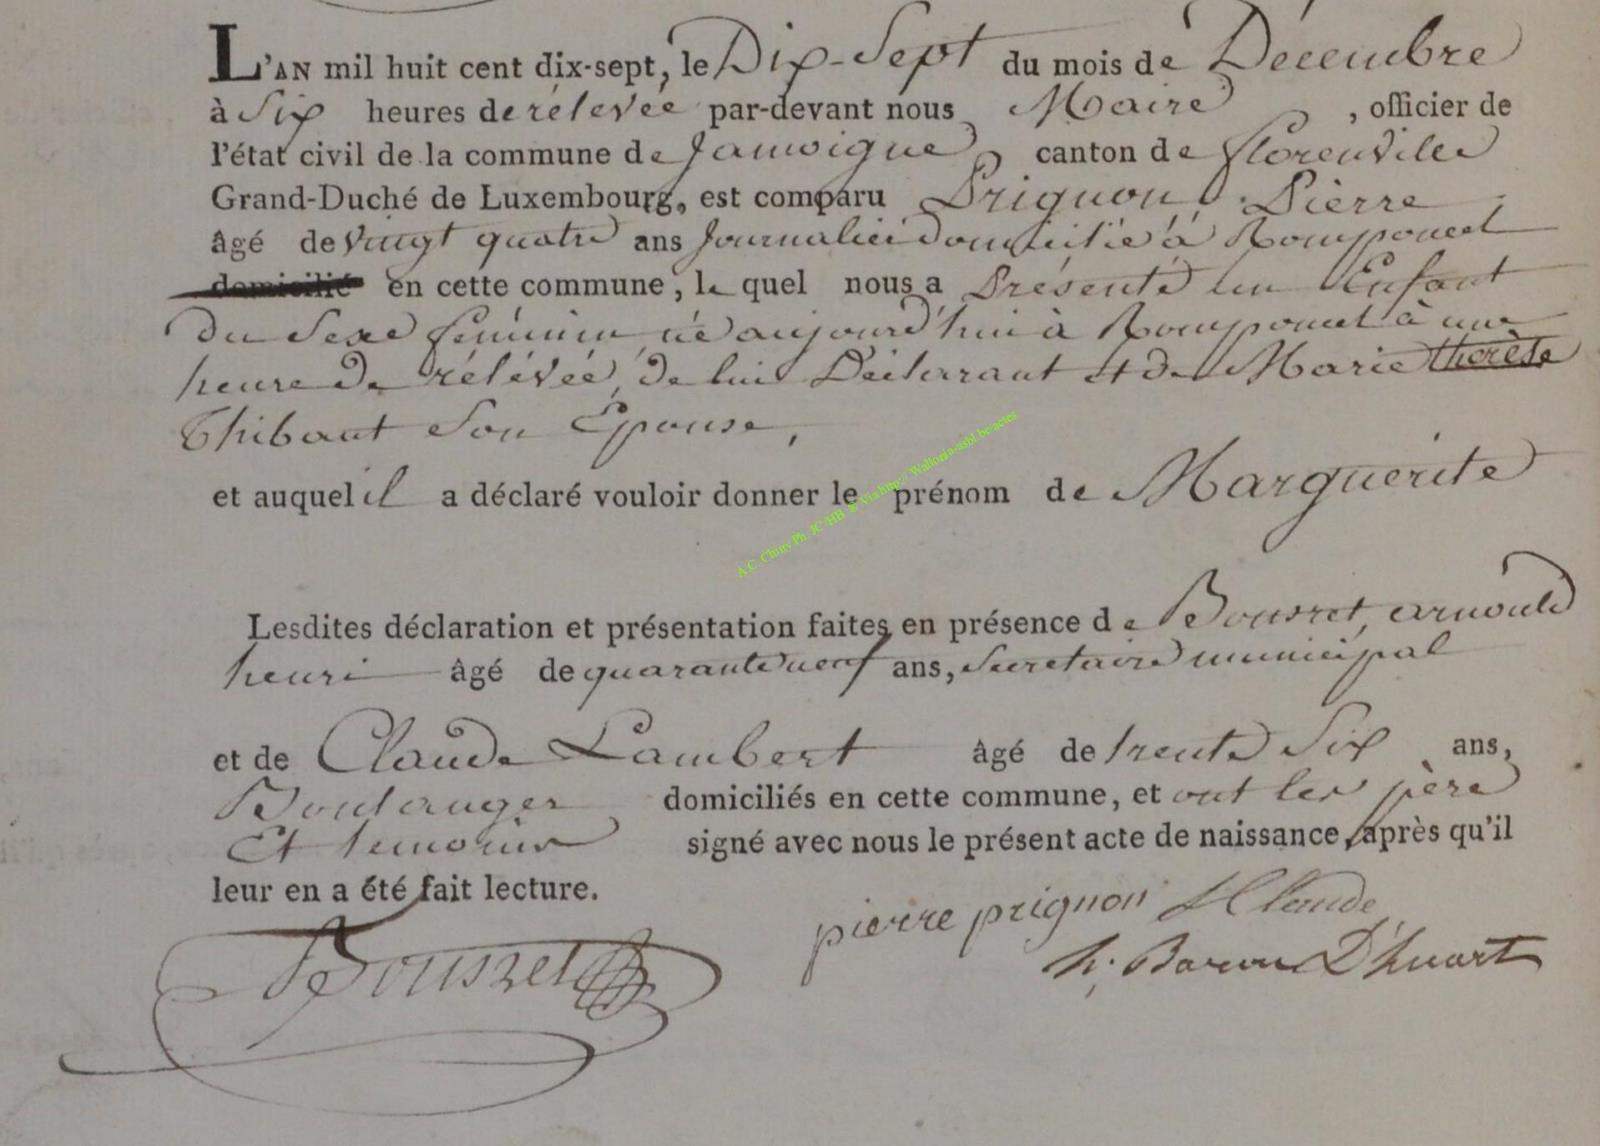 L'AN mil huit cent dix-sept, le Dix-Sept du mois de Décembre
à Six heures de rélevée par-devant nous Maire , officier de
l'état civil de la commune de Jamoigne, canton de florenville
Grand-Duché de Luxembourg, est comparu Prignon Pierre
âgé de vingt quatre ans Journalier domicilié à Romponcel
domicilié en cette commune, le quel nous a Présenté un Enfant
du Sexe féminin, né aujourd'hui à Romponcel à une
heure de rélévée, de lui Déclarant et de Marie therèse
Thibaut Son Épouse,
et auquel il a déclaré vouloir donner le prénom de Marguerite
A.C. Chiny Ph. JC HB & Via http:// Wallonia-asbl.be/actes
Lesdites déclaration et présentation faites en présence de Bousret, arnould
henri âgé de quarante neuf ans, Secretaire municipal
et de Claude Lambert âgé de trente Six ans,
Boulanger domiciliés en cette commune, et ont les père
Et temoins signé avec nous le présent acte de naissance, après qu'il
leur en a été fait lecture.
pierre prignon L Claude
Bousret h. Baron D'huart